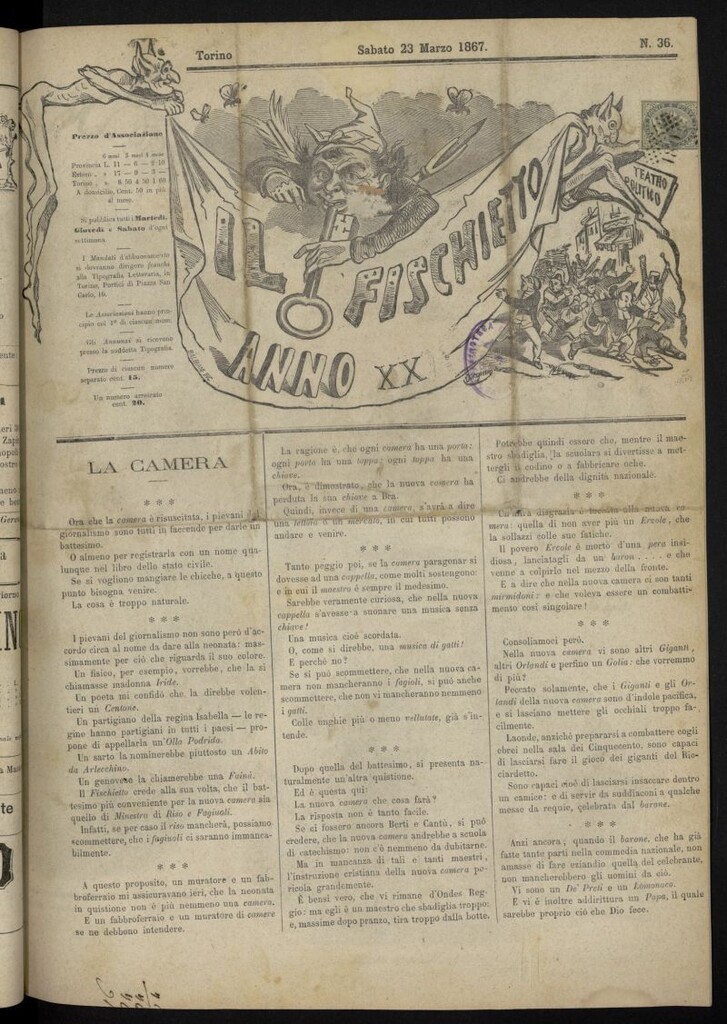 Torino
Sabato 23 Marzo 1867.
N. 36.
Prezzo d'Associazione
6 mesi 3 mesi 1 mese
Provincia L. 11 — 6 — 2 10
Estero. » 17 — 9 — 3 —
Torino. » 8 50 4 50 1 60
A domicilio, Cent. 50 in più
al mese.
Si pubblica tutti i Martedì,
Giovedì e Sabato d'ogni
settimana.
I Mandati d'abbuonamento
si dovranno dirigere franchi
alla Tipografia Letteraria, in
Torino, Portici di Piazza San
Carlo, 10.
Le Associazioni hanno prin-
cipio col 1° di ciascun mese.
Gli Annunzi si ricevono
presso la suddetta Tipografia.
Prezzo di ciascun numero
separato cent. 15.
Un numero arretrato
cent. 20.
IL FISCHIETTO
ANNO XX
TEATRO
POLITICO
LA CAMERA
* * *
Ora che la camera è risuscitata, i pievani del
giornalismo sono tutti in faccende per darle un
battesimo.
O almeno per registrarla con un nome qua-
lunque nel libro dello stato civile.
Se si vogliono mangiare le chicche, a questo
punto bisogna venire.
La cosa è troppo naturale.
* * *
I pievani del giornalismo non sono però d'ac-
cordo circa al nome da dare alla neonata: mas-
simamente per ciò che riguarda il suo colore.
Un fisico, per esempio, vorrebbe, che la si
chiamasse madonna Iride.
Un poeta mi confidò che la direbbe volen-
tieri un Centone.
Un partigiano della regina Isabella — le re-
gine hanno partigiani in tutti i paesi — pro-
pone di appellarla un'Olla Podrida.
Un sarto la nominerebbe piuttosto un Abito
da Arlecchino.
Un genovese la chiamerebbe una Fainà.
Il Fischietto crede alla sua volta, che il bat-
tesimo più conveniente per la nuova camera sia
quello di Minestra di Riso e Fagiuoli.
Infatti, se per caso il riso mancherà, possiamo
scommettere, che i fagiuoli ci saranno immanca-
bilmente.
* * *
A questo proposito, un muratore e un fab-
broferraio mi assicuravano ieri, che la neonata
in quistione non è più nemmeno una camera.
E un fabbroferraio e un muratore di camere
se ne debbono intendere.
La ragione è, che ogni camera ha una porta:
ogni porta ha una toppa: ogni toppa ha una
chiave.
Ora, è dimostrato, che la nuova camera ha
perduta la sua chiave a Bra.
Quindi, invece di una camera, s'avrà a dire
una tettoia o un mercato, in cui tutti possono
andare e venire.
* * *
Tanto peggio poi, se la camera paragonar si
dovesse ad una cappella, come molti sostengono:
e in cui il maestro è sempre il medesimo.
Sarebbe veramente curiosa, che nella nuova
cappella s'avesse a suonare una musica senza
chiave!
Una musica cioè scordata.
O, come si direbbe, una musica di gatti!
E perchè no?
Se si può scommettere, che nella nuova ca-
mera non mancheranno i fagioli, si può anche
scommettere, che non vi mancheranno nemmeno
i gatti.
Colle unghie più o meno vellutate, già s'in-
tende.
* * *
Dopo quella del battesimo, si presenta na-
turalmente un'altra quistione.
Ed è questa qui:
La nuova camera che cosa farà?
La risposta non è tanto facile.
Se ci fossero ancora Berti e Cantù, si può
credere, che la nuova camera andrebbe a scuola
di catechismo: non c'è nemmeno da dubitarne.
Ma in mancanza di tali e tanti maestri,
l'instruzione cristiana della nuova camera pe-
ricola grandemente.
È bensì vero, che vi rimane d'Ondes Reg-
gio: ma egli è un maestro che sbadiglia troppo:
e, massime dopo pranzo, tira troppo dalla botte.
Potrebbe quindi essere che, mentre il mae-
stro sbadiglia, la scuolara si divertisse a met-
tergli il codino o a fabbricare oche.
Ci andrebbe della dignità nazionale.
* * *
Un'altra disgrazia è toccata alla nuova ca-
mera: quella di non aver più un Ercole, che
la sollazzi colle sue fatiche.
Il povero Ercole è morto d'una pera insi-
diosa, lanciatagli da un baron . . . . . e che
venne a colpirlo nel mezzo della fronte.
E a dire che nella nuova camera ci son tanti
mirmidoni: e che voleva essere un combatti-
mento così singolare!
* * *
Consoliamoci però.
Nella nuova camera vi sono altri Giganti,
altri Orlandi e perfino un Golia: che vorremmo
di più?
Peccato solamente, che i Giganti e gli Or-
landi della nuova camera sono d'indole pacifica,
e si lasciano mettere gli occhiali troppo fa-
cilmente.
Laonde, anzichè prepararsi a combattere cogli
ebrei nella sala dei Cinquecento, sono capaci
di lasciarsi fare il gioco dei giganti del Ric-
ciardetto.
Sono capaci cioè di lasciarsi insaccare dentro
un camice: e di servir da suddiaconi a qualche
messa da requie, celebrata dal barone.
* * *
Anzi ancora, quando il barone, che ha già
fatte tante parti nella commedia nazionale, non
amasse di fare eziandio quella del celebrante,
non mancherebbero gli uomini da ciò.
Vi sono un De' Preti e un Lomonaco.
E vi è inoltre addirittura un Papa, il quale
sarebbe proprio ciò che Dio fece.